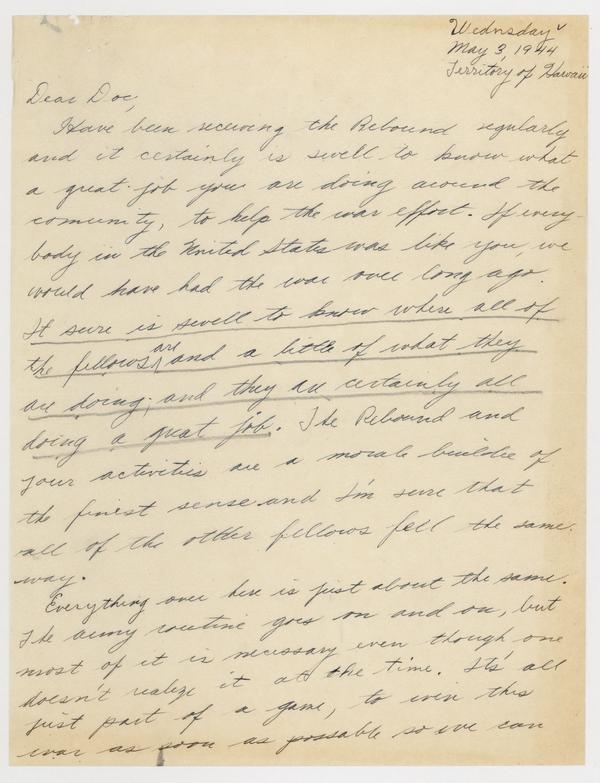 Wednsday
May 3, 1944
Territory of Hawaii
Dear Doc,
Have been receving the Rebound regularly
and it certainly is swell to know what
a great job you are doing around the
comunity, to help the war effort. If every-
body in the United States was like you, we
would have had the war over long ago.
It sure is swell to know where all of
the fellows are and a little of what they
are doing, and they are certainly all
doing a great job. The Rebound and
your activities are a morale builder of
the finest sense and I'm sure that
all of the other fellows fell the same
way.
Everything over here is just about the same.
The army routine goes on and on, but
most of it is necessary even though one
doesn't realize it at the time. It's all
just part of a game, to win this
war as soon as possable so we can